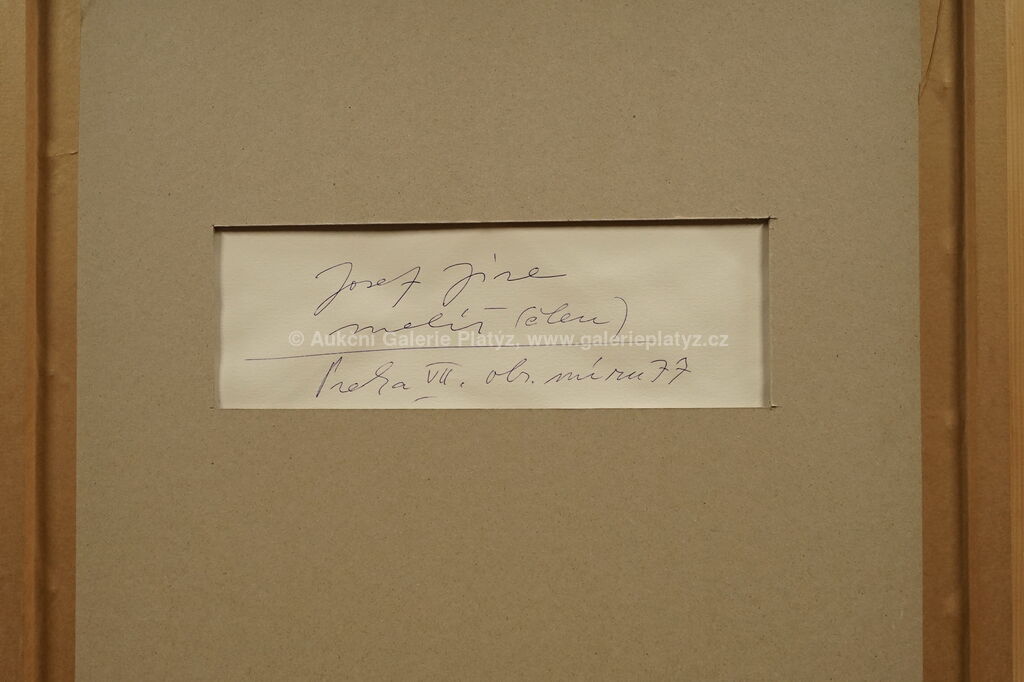 Josef Jíra
malíř (člen)
© Aukcní Galerie Platýz, www.galerieplatyz.cz
Praha VII. obr. míru 77